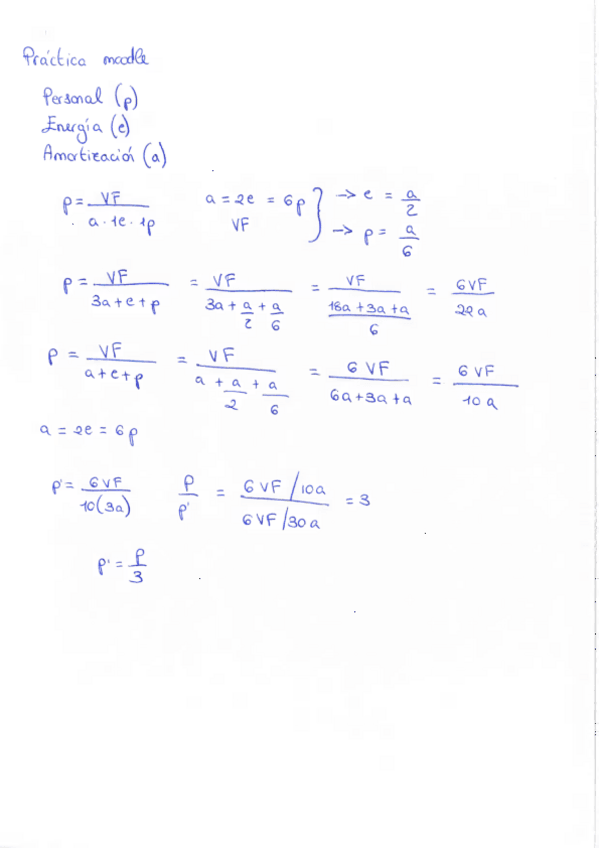 Práctica moodle
Personal (p)
Energía (e)
Amortización (a)
p = VF / a · 1e · 1p    a = 2e = 6p } → e = a/2
VF    → p = a/6
p = VF / 3a + e + p = VF / 3a + a/2 + a/6 = VF / 18a + 3a + a / 6 = 6VF / 22a
p = VF / a + e + p = VF / a + a/2 + a/6 = 6 VF / 6a + 3a + a = 6 VF / 10 a
a = 2e = 6p
p' = 6VF / 10(3a)    p / p' = 6 VF / 10a / 6 VF / 30a = 3
p' = p / 3